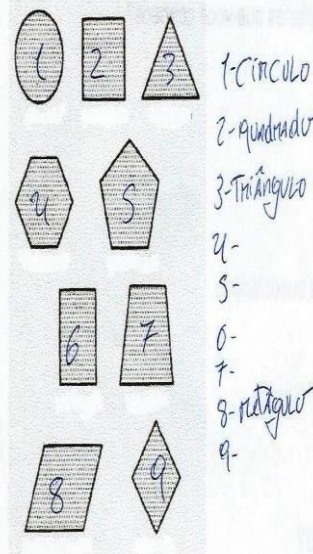 1 2 3
4 5
6 7
8 9
1-Círculo
2-quadrado
3-Triângulo
4-
5-
6-
7-
8-retâgulo
9-